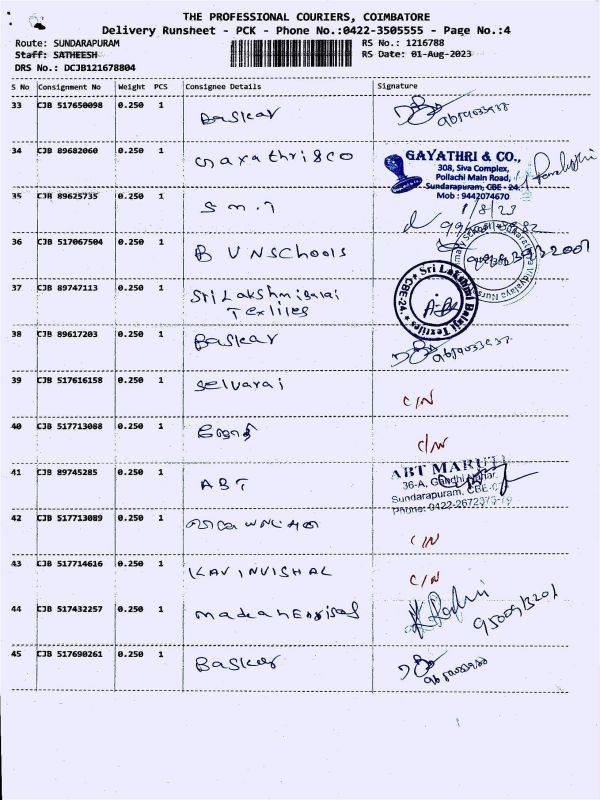 THE PROFESSIONAL COURIERS, COIMBATORE
Delivery Runsheet - PCK - Phone No.:0422-3505555 - Page No.:4
Route: SUNDARAPURAM RS No.: 1216788
Staff: SATHEESH RS Date: 01-Aug-2023
DRS No.: DCJB121678804
S No Consignment No Weight PCS Consignee Details Signature
33 CJB 517650098 0.250 1 Baskar
34 CJB 89682060 0.250 1 Gayathri & co
GAYATHRI & CO.,
308, Siva Complex,
Pollachi Main Road,
Sundarapuram, CBE - 24.
Mob : 9442074670
35 CJB 89625735 0.250 1 S m. 7 1/8/23
36 CJB 517067504 0.250 1 B V N SCHOOLS
37 CJB 89747113 0.250 1 Sri Lakshmi
Textiles
Sri Lakshmi Balaji Textiles
CBE-24.
38 CJB 89617203 0.250 1 Baskar
39 CJB 517616158 0.250 1 Selvaraj C/N
40 CJB 517713088 0.250 1 C/N
41 CJB 89745285 0.250 1 ABT
ABT MARUTI
36-A, Gandhi Nagar,
Sundarapuram, CBE-
Phone: 0422-2672373
42 CJB 517713089 0.250 1 C/N
43 CJB 517714616 0.250 1 KAVINVISHAL C/N
44 CJB 517432257 0.250 1 9500913201
45 CJB 517690261 0.250 1 Basker